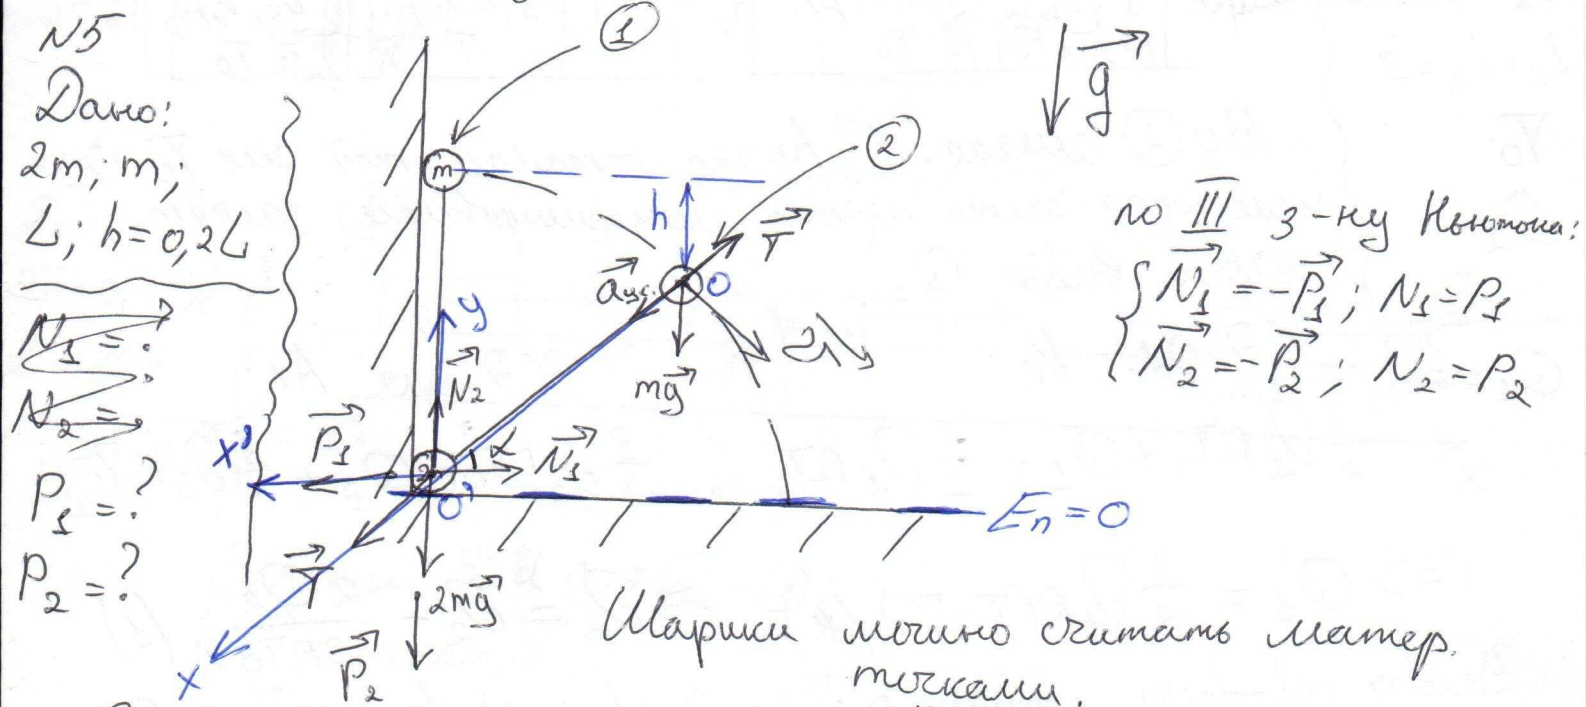 N5
Дано:
2m; m;
L; h=0,2L
N₁ = ?
N₂ = ?
P₁ = ?
P₂ = ?
1
2
m
h
T
O
aцс.
mg
y
N₂
x'
P₁
α
N₁
O'
Eп = 0
T
2mg
x
P₂
g
по III з-ну Ньютона:
N₁ = -P₁; N₁ = P₁
N₂ = -P₂; N₂ = P₂
Шарики можно считать матер.
точками.